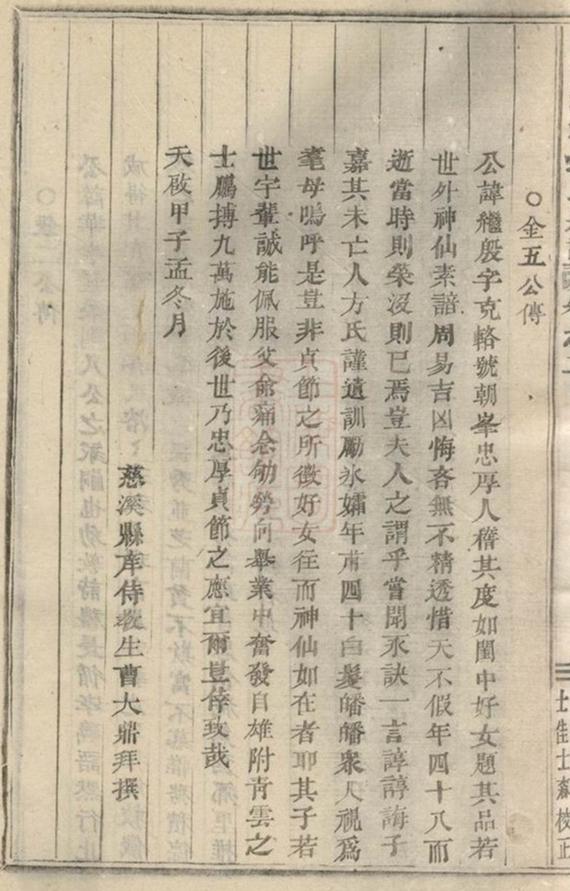 ○金五公傳
公諱繼殷字克輅號朝峯忠厚人稽其度如閨中好女題其品若
世外神仙素諳周易吉凶悔吝無不精透惜天不假年四十八而
逝當時則榮沒則已焉豈夫人之謂乎嘗聞永訣一言諄諄誨子
嘉其未亡人方氏謹遺訓勵氷孀年甫四十白髮皤皤衆人視爲
耄母嗚呼是豈非貞節之所徵好女往而神仙如在者耶其子若
世宇輩誠能佩服父命痛念劬勞向舉業中奮發自雄附青雲之
士鵬搏九萬施於後世乃忠厚貞節之應宜爾豈倖致哉
天啟甲子孟冬月
慈溪縣庠侍敎生曹大鼎拜撰